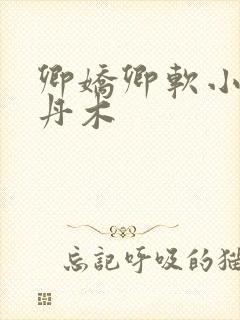 卿嬌卿軟小
丹木
忘記呼吸的猫